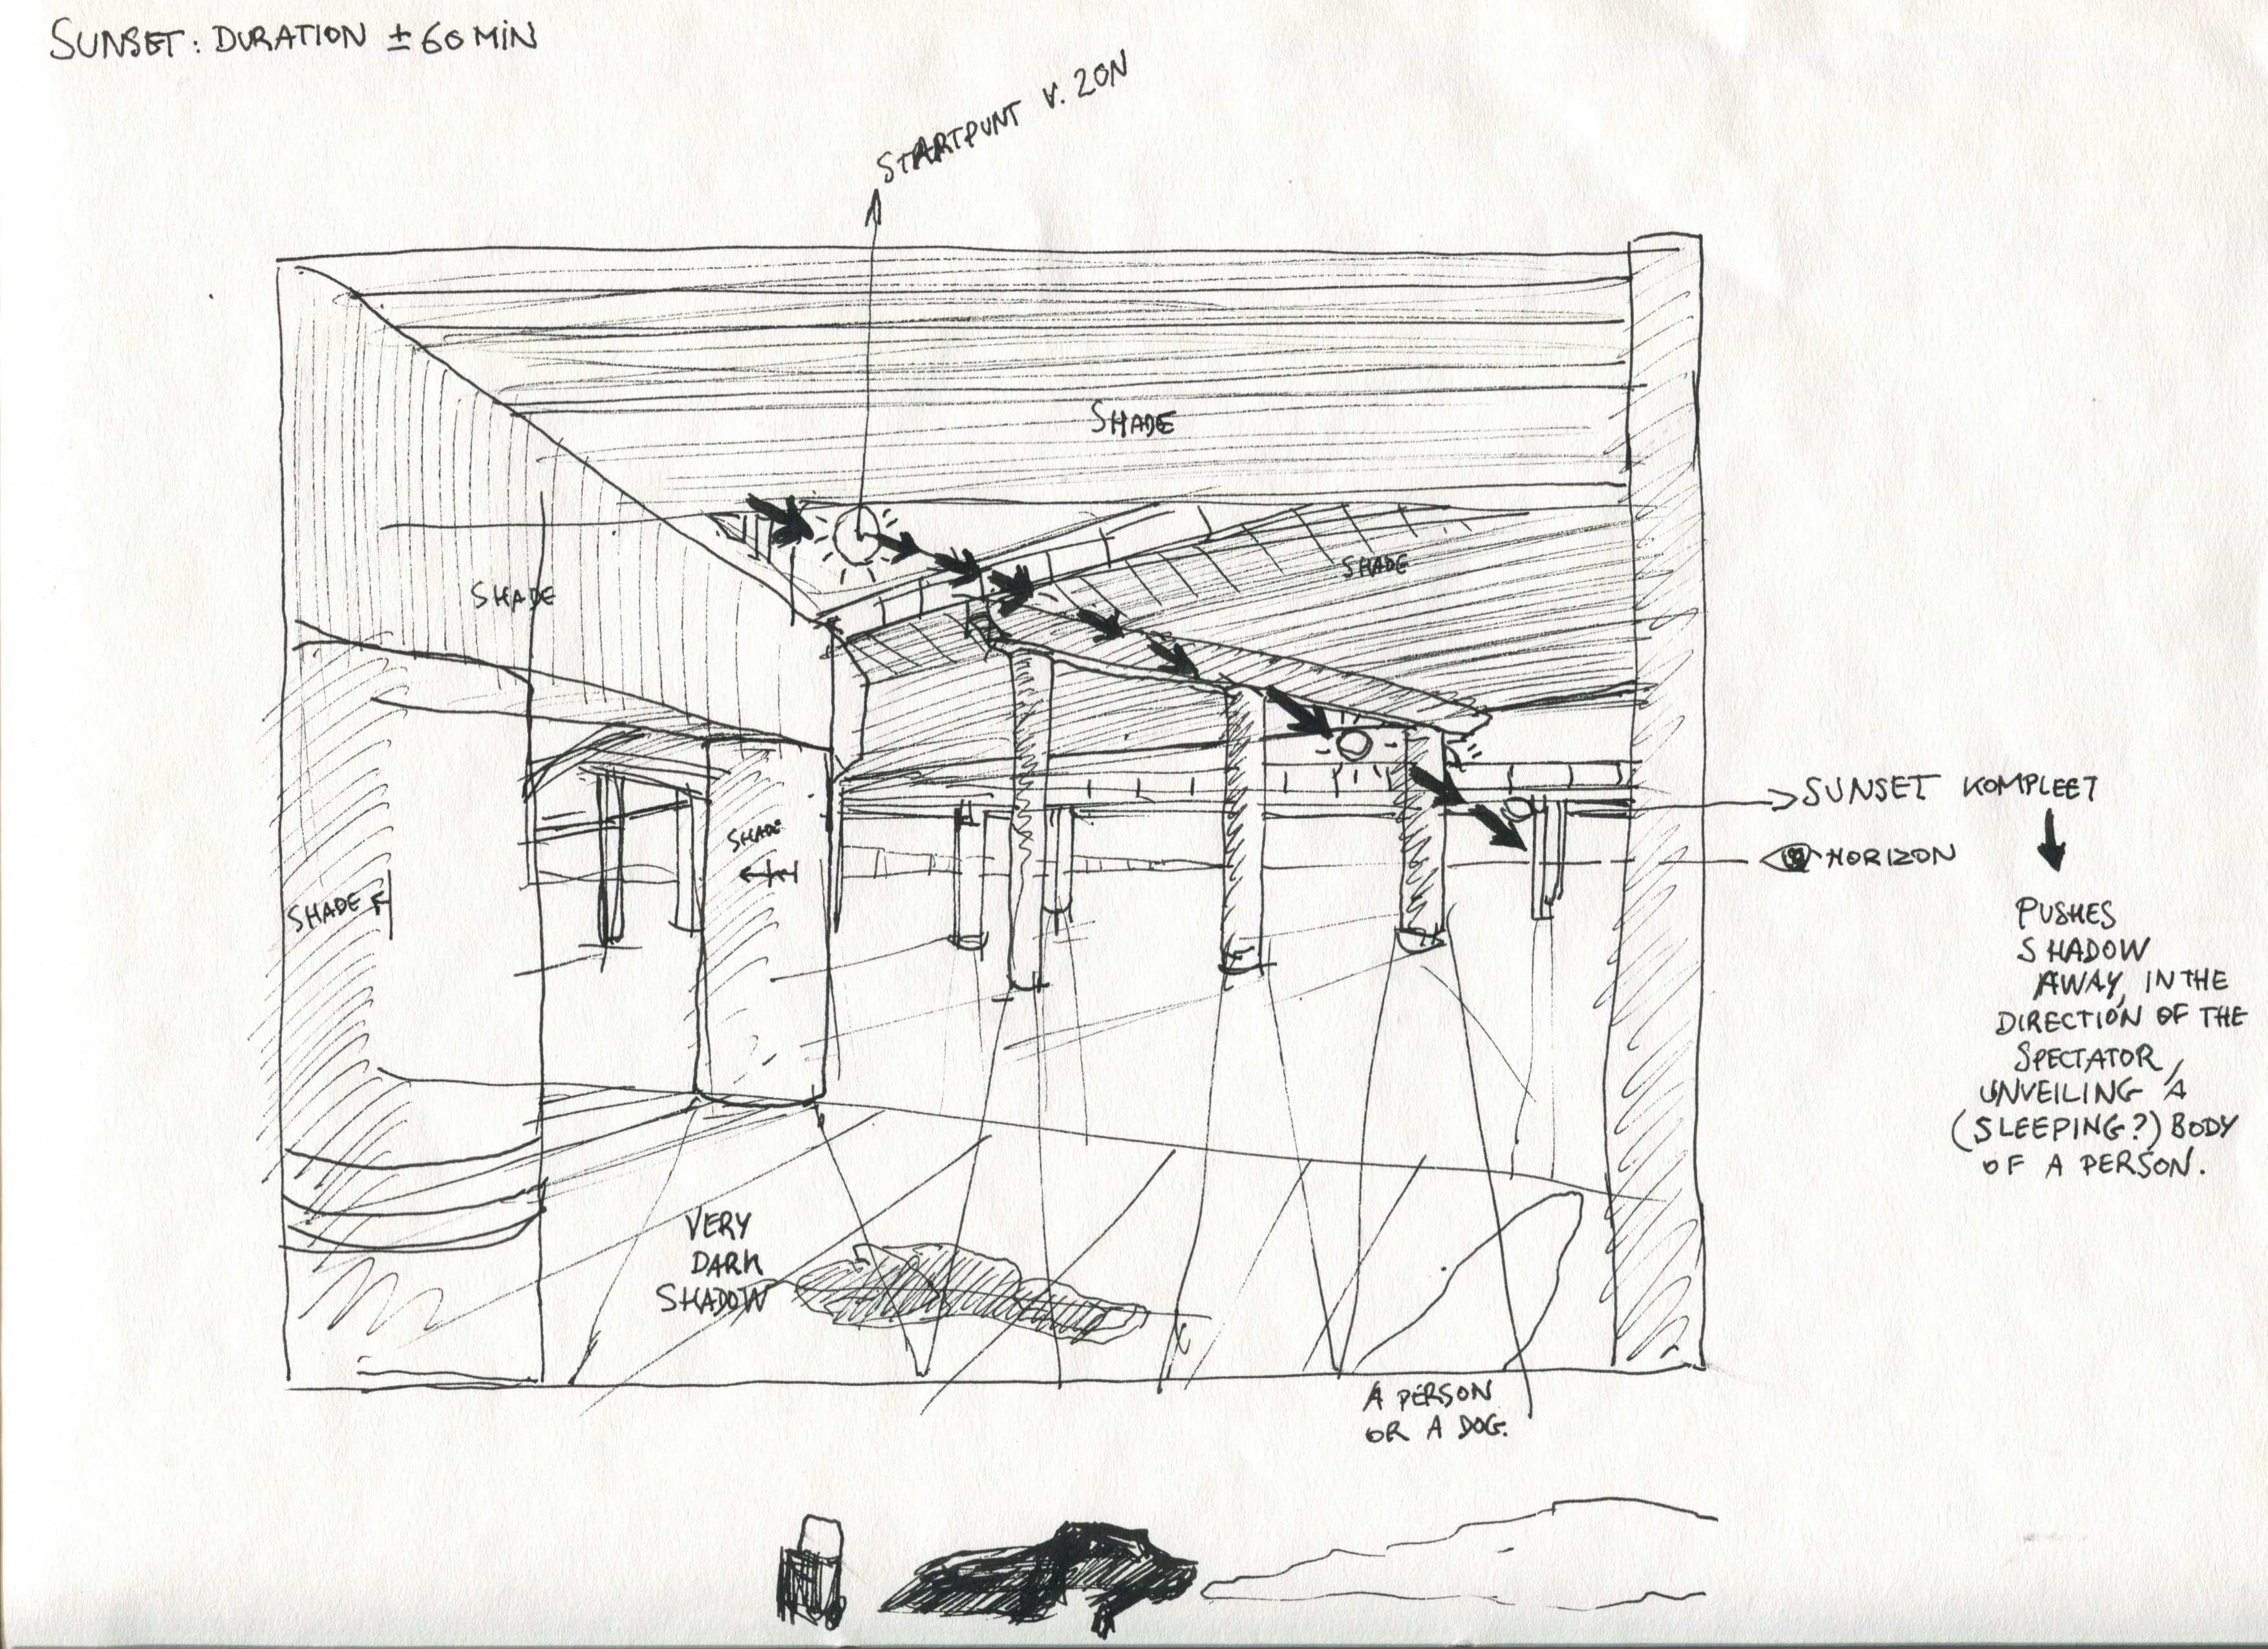 SUNSET: DURATION ± 60 MIN
STARTPUNT V. ZON
SHADE
SHADE
SHADE
SHADE
SHADE
SUNSET KOMPLEET
HORIZON
PUSHES
SHADOW
AWAY, IN THE
DIRECTION OF THE
SPECTATOR,
UNVEILING A
(SLEEPING?) BODY
OF A PERSON.
VERY
DARK
SHADOW
A PERSON
OR A DOG.